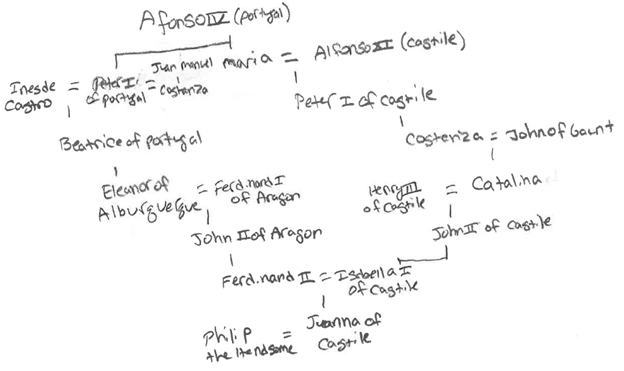 Afonso IV (portgal)
Juan manuel
maria = Alfonso XI (castile)
Inesde Castro = Peter I of portgal = costanza
Peter I of castile
Beatrice of portygal
Costenza = John of Gaunt
Eleanor of Alburguerque = Ferdinand I of Aragon
Henry III of Castile = Catalina
John II of Aragon
John II of castile
Ferdinand II = Isabella I of Castile
Philip the Handsome = Juanna of Castile